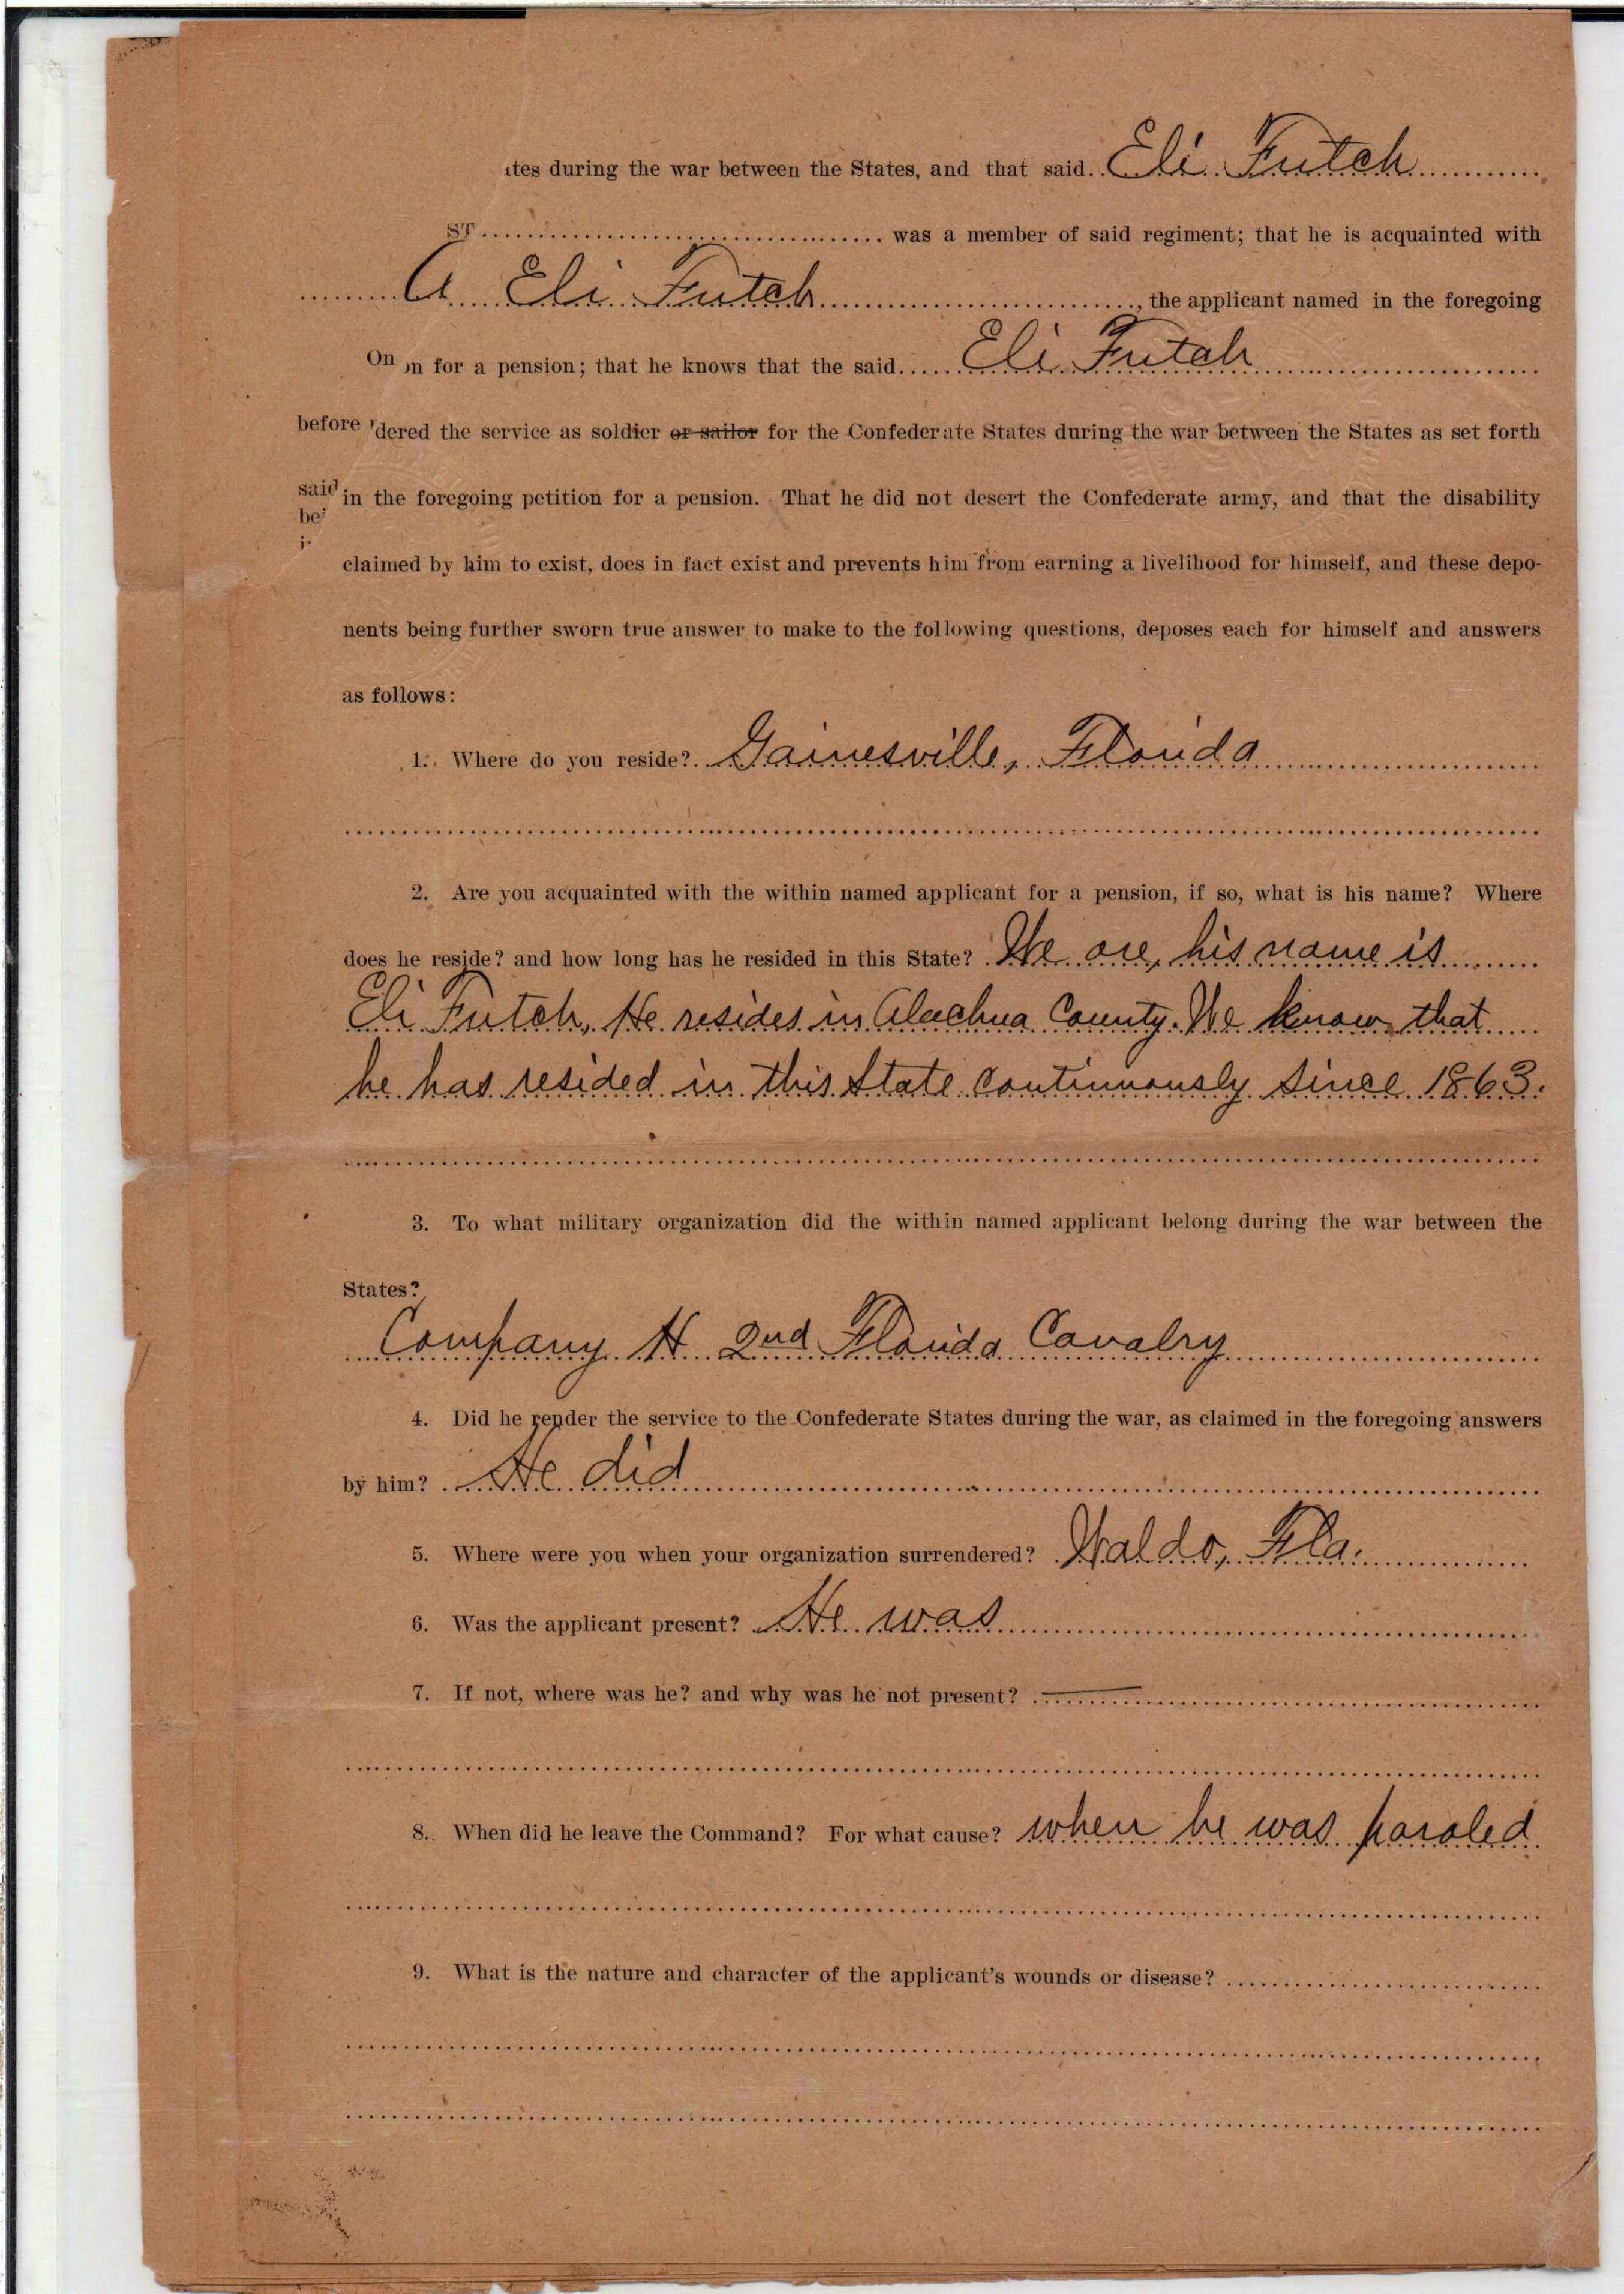 tes during the war between the States, and that said Eli Futch
ST was a member of said regiment; that he is acquainted with
Eli Futch, the applicant named in the foregoing
On n for a pension; that he knows that the said Eli Futch
before dered the service as soldier or sailor for the Confederate States during the war between the States as set forth
said in the foregoing petition for a pension. That he did not desert the Confederate army, and that the disability
be
claimed by him to exist, does in fact exist and prevents him from earning a livelihood for himself, and these depo-
nents being further sworn true answer to make to the following questions, deposes each for himself and answers
as follows:
1. Where do you reside? Gainesville, Florida
2. Are you acquainted with the within named applicant for a pension, if so, what is his name? Where
does he reside? and how long has he resided in this State? We are, his name is
Eli Futch, He resides in Alachua County. We know that
he has resided in this State continuously since 1863.
3. To what military organization did the within named applicant belong during the war between the
States?
Company H 2nd Florida Cavalry
4. Did he render the service to the Confederate States during the war, as claimed in the foregoing answers
by him? He did
5. Where were you when your organization surrendered? Waldo, Fla.
6. Was the applicant present? He was
7. If not, where was he? and why was he not present?
8. When did he leave the Command? For what cause? when he was paroled
9. What is the nature and character of the applicant's wounds or disease?